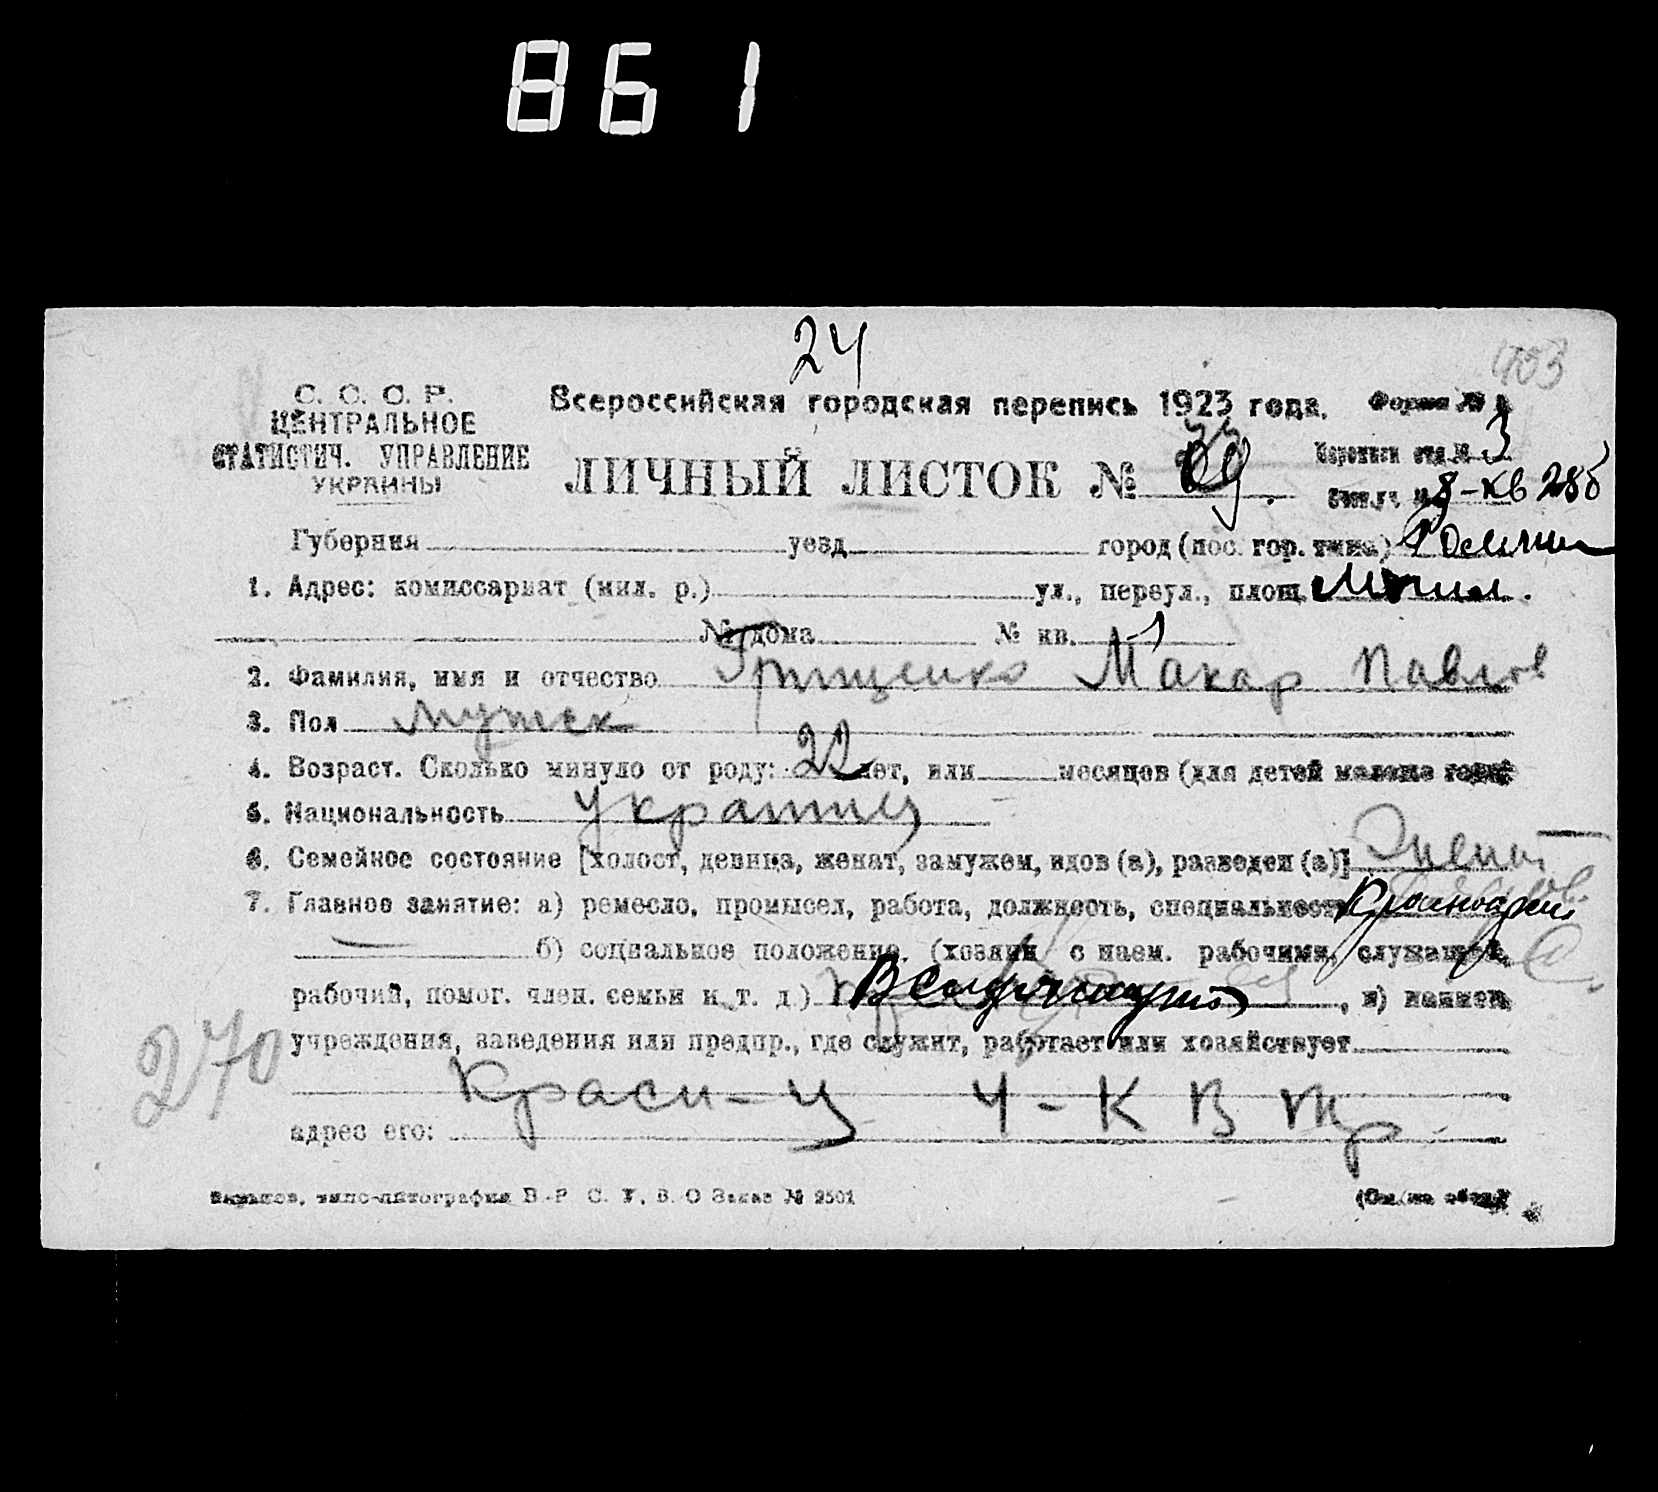 861
24
403
С. С. С. Р.
ЦЕНТРАЛЬНОЕ
СТАТИСТИЧ. УПРАВЛЕНИЕ
УКРАИНЫ
Всероссийская городская перепись 1923 года.
Форма №
ЛИЧНЫЙ ЛИСТОК №
3
8-кв 28б
Губерния уезд город (пос. гор. типа) Ромны
1. Адрес: комиссариат (мил. р.) ул., переул., площ.
№ дома № кв. 1
2. Фамилия, имя и отчество Грищенко Макар Павлов
3. Пол мужск
4. Возраст. Сколько минуло от роду: 22 лет, или месяцов (для детей моложе года)
5. Национальность Украинец
6. Семейное состояние [холост, девица, женат, замужем, вдов (а), разведен (а)] Женат
7. Главное занятие: а) ремесло, промысел, работа, должность, специальность Красноарм.
б) социальное положение, (хозяин с наем. рабочими, служащий,
рабочий, помог. член. семьи и т. д.) , в) наимен.
учреждения, заведения или предпр., где служит, работает или хозяйствует
Красн-ц 4-К В
адрес его:
270
Харьков, типо-литография В.-Р. С. У. В. О Заказ № 2501
(См. на обор.)